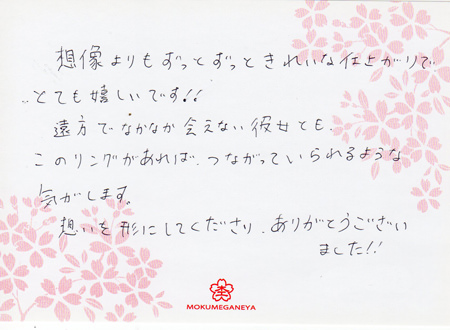 想像よりもずっとずっときれいな仕上がりで
とても嬉しいです!!
遠方でなかなか会えない彼女とも、
このリングがあれば、つながっていられるような
気がします。
想いを形にしてくださり、ありがとうござい
ました!!
MOKUMEGANEYA